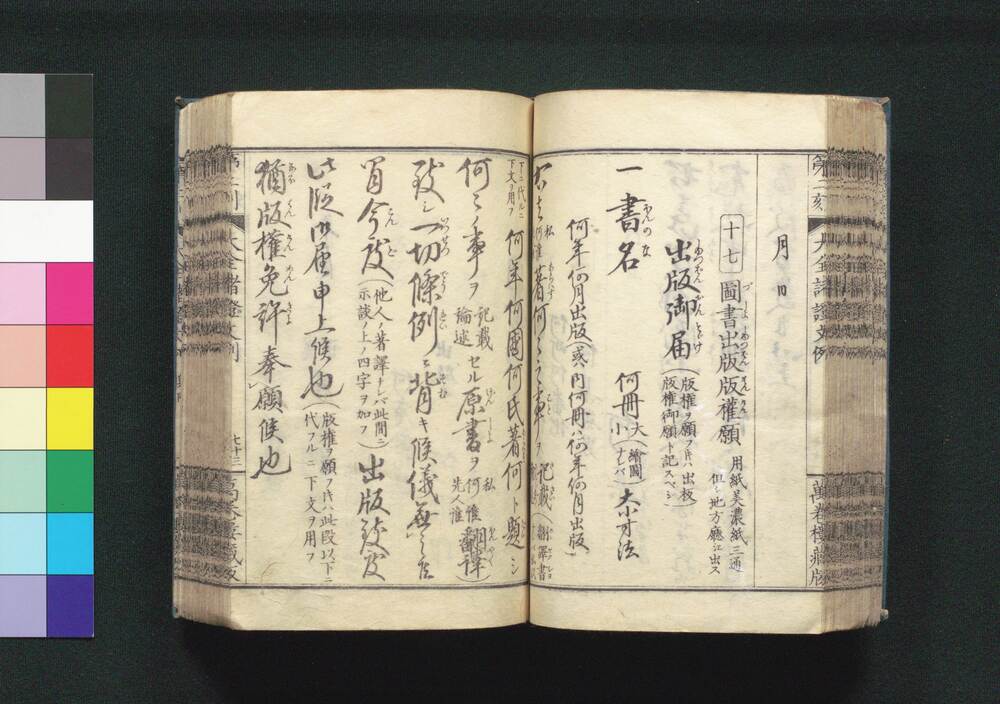 月日
十七 圖書出版版權願 用紙美濃紙三通
但シ地方廳江出ス
出版御届 (版權ヲ願フ氏ハ出板
版權御願ト記スベシ)
一書名 何冊 大小 (繪圖ナレバ) 寸法
何年何月出版(或ハ内何冊ハ何年何月出版)
右は 私 何誰 著何々ノ事ヲ記載
下ニ代ルニ
下文ヲ用フ
何年何國何氏著何ト題シ
何々ノ事ヲ 記載 論述 セル原書ヲ 私 何誰 先人誰 翻譯
致シ一切條例ニ背キ候儀無之候
間今度(他人ノ著譯ナレバ此間ニ
示談ノ上ノ四字ヲ加フ)出版致度
此段御届申上候也(版權ヲ願フ氏ハ此段以下ニ
代フルニ下文ヲ用フ
猶版權免許奉願候也
第二刻
大全諸證文例
萬巻樓藏版
七十三